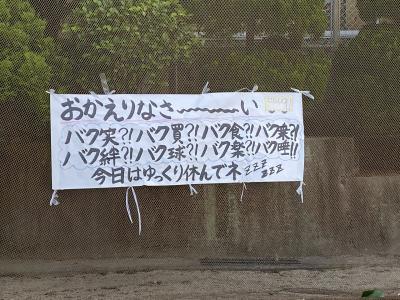 おかえりなさ〜〜〜〜い
バク笑?!バク買?!バク食?!バク来?!
バク絆?!バク球?!バク楽?!バク睡!!
今日はゆっくり休んでネzzz zzz